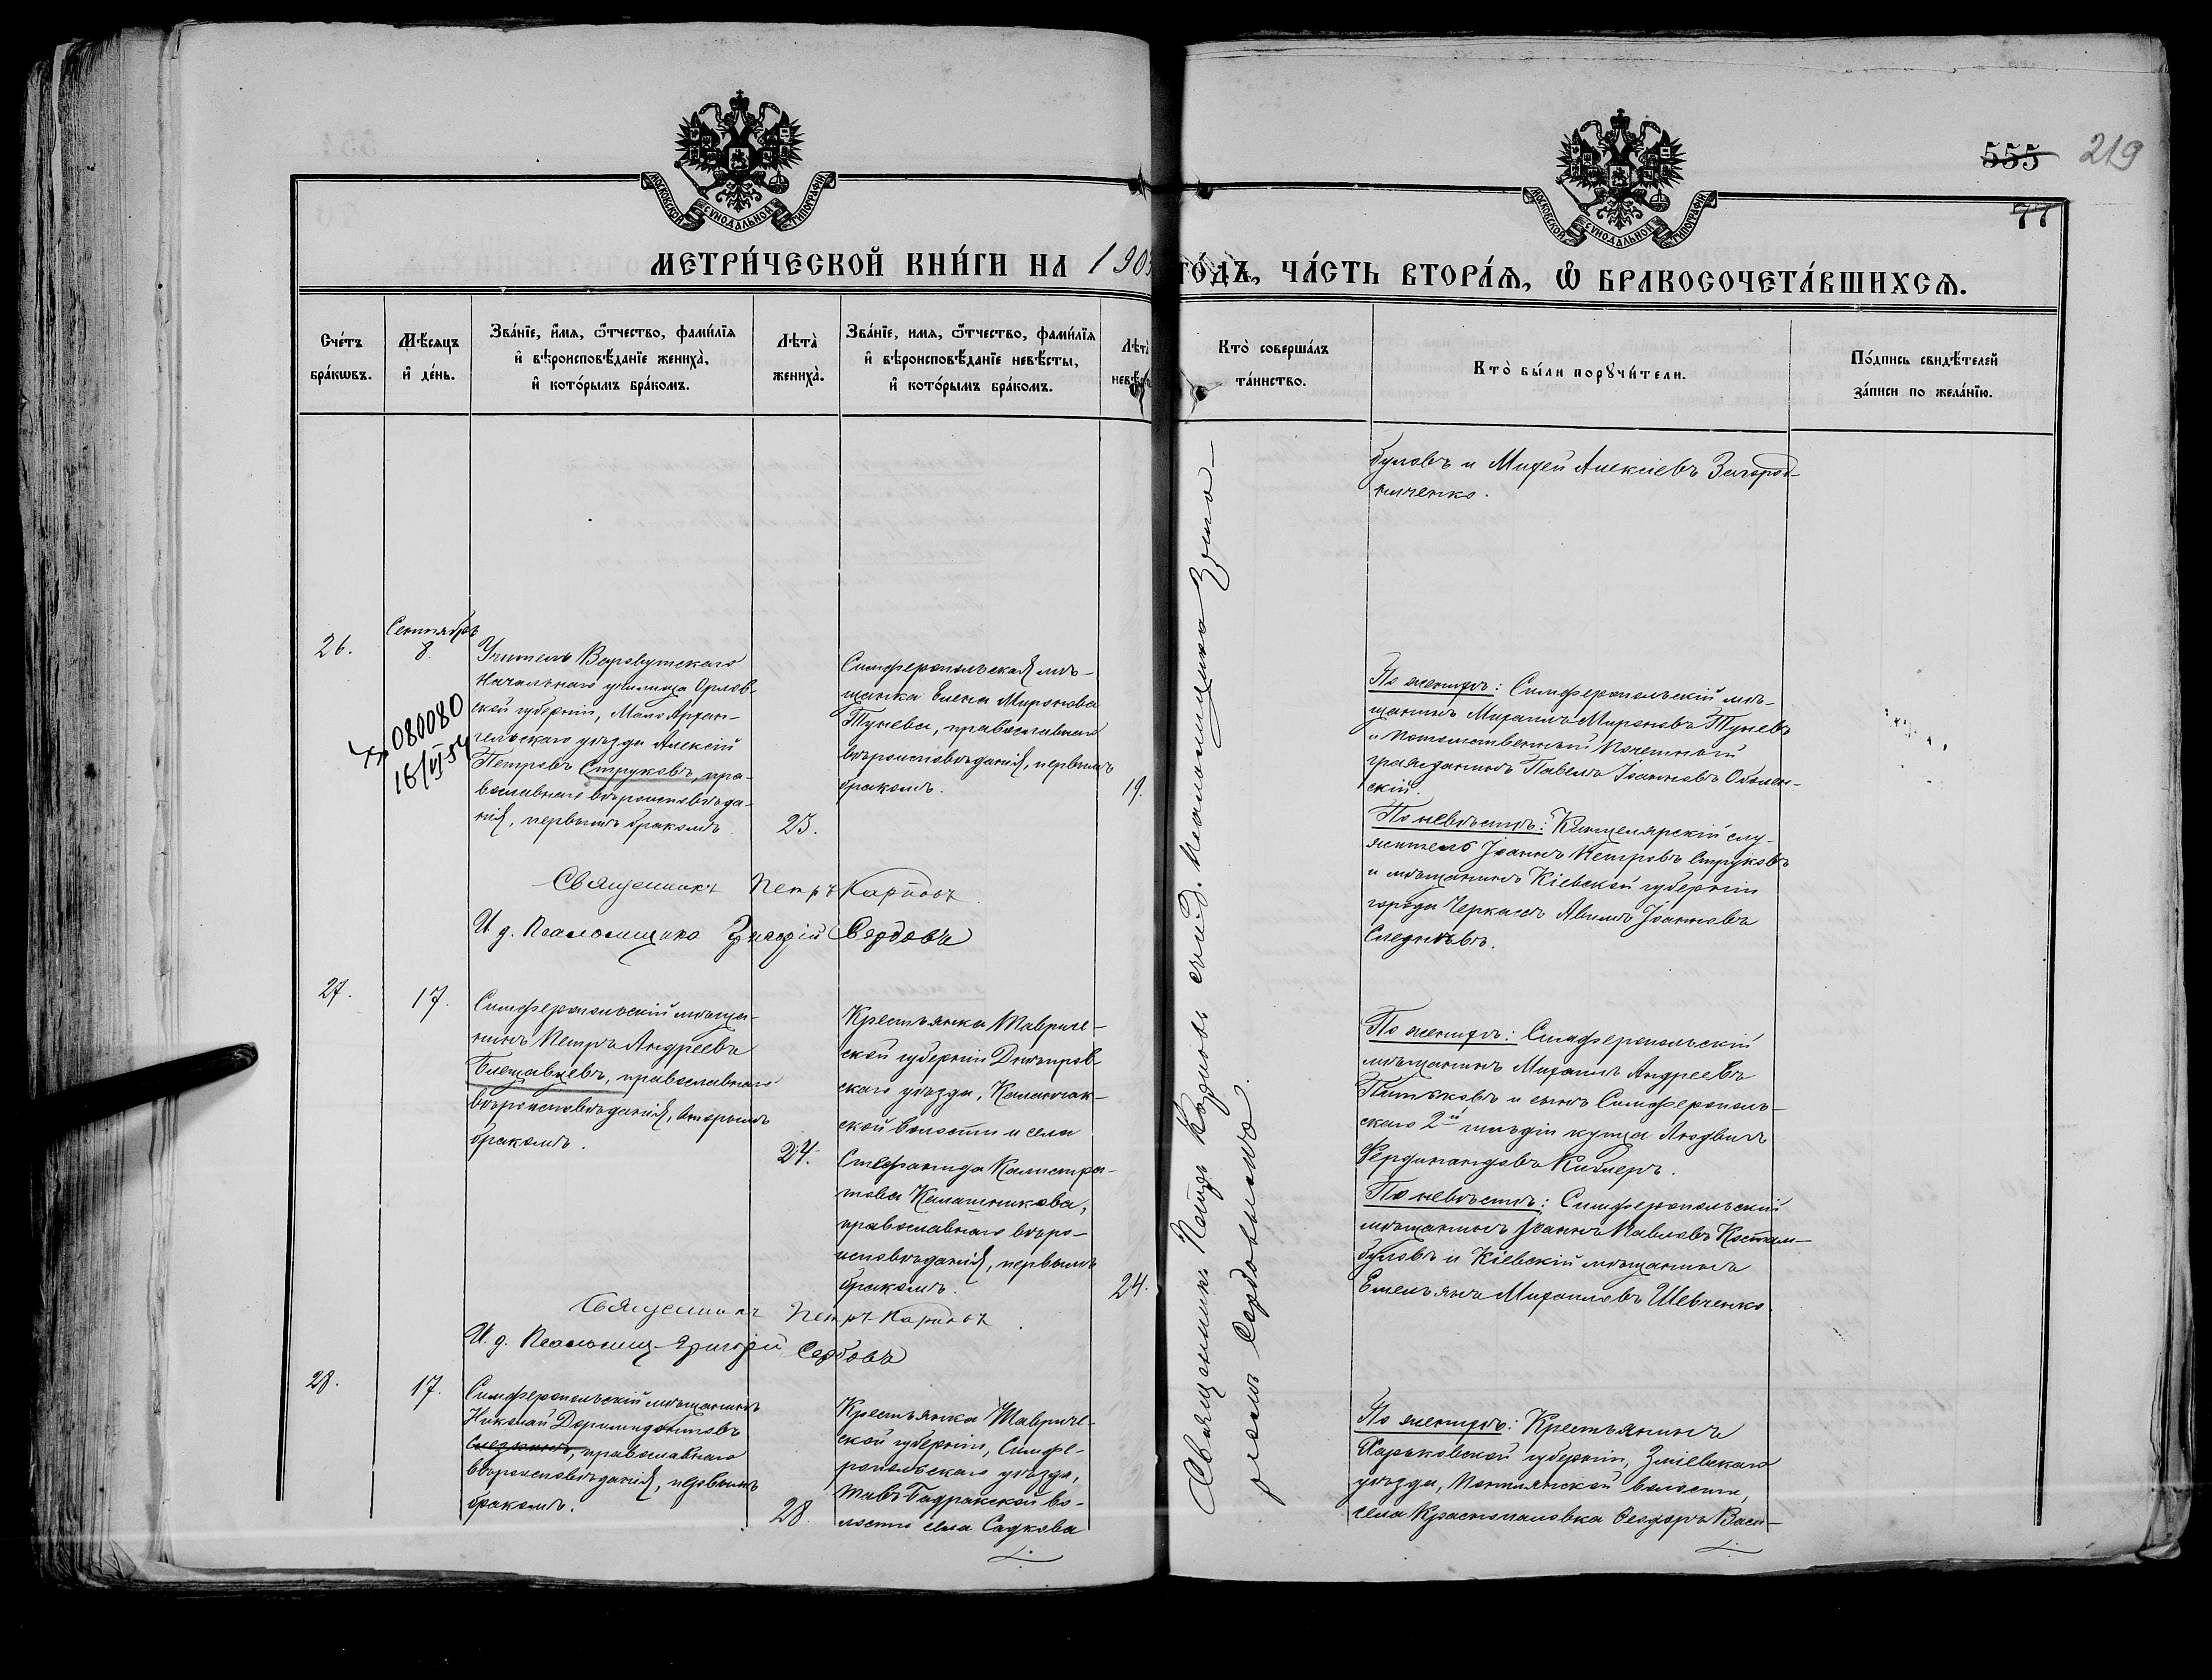 555 219
77
МОСКОВСКОЙ СѴНОДАЛЬНОЙ ТИПОГРАФІИ
МОСКОВСКОЙ СѴНОДАЛЬНОЙ ТИПОГРАФІИ
МЕТРИ́ЧЕСКОЙ КНИ́ГИ НА 1903
ГО́ДЪ, ЧА́СТЬ ВТОРА́Я, Ѡ БРАКОСОЧЕТА́ВШИХСЯ.
Сче́тъ
бра́кѡвъ.
Мѣ́сяцъ
и де́нь.
Зва́нїе, и́мя, ѻ҆́тчество, фами́лїя
и вѣроисповѣ́данїе жениха̀,
и кото́рымъ бра́комъ.
Лѣта̀
жениха̀.
Зва́нїе, имя, ѻ҆́тчество, фами́лїя
и вѣроисповѣ́данїе невѣ́сты,
и кото́рымъ бра́комъ.
Лѣта̀
невѣ́сты
Кто̀ соверша́лъ
та́инство.
Кто̀ бы́ли порꙋчи́тели.
По́дпись свидѣ́телей
за́писи по жела́нїю.
буловъ и Мифей Алексіевъ Загород-
ниченко.
26.
Сентября
8.
080080
16/VI 54
Учитель Воробутскаго
Начальнаго училища Орлов-
ской губерніи, Мало Архан-
гельскаго уѣзда Алексій
Петровъ Струковъ, пра-
вославнаго вѣроисповѣда-
нія, первымъ бракомъ
23.
Симферопольская мѣ-
щанка Елена Миронова
Тунева, православнаго
вѣроисповѣданія, первымъ
бракомъ.
19.
По женихѣ: Симферопольскій мѣ-
щанинъ Михаилъ Мироновъ Туневъ
и потомственный Почетный
гражданинъ Павелъ Іоанновъ Оболен-
скій.
По невѣстѣ: Канцелярскій слу-
житель Іоаннъ Петровъ Струковъ
и мѣщанинъ Кіевской губерніи
города Черкасъ Авимъ Іоанновъ
Следнѣвъ.
Священникъ Петръ Карповъ
И. д. Псаломщика Григорій Сердовъ
27.
17.
Симферопольскій мѣща-
нинъ Петръ Андреевъ
Блещавцевъ, православнаго
вѣроисповѣданія, вторымъ
бракомъ.
24.
Крестьянка Тавриче-
ской губерніи Днѣпров-
скаго уѣзда, Каланчак-
ской волости и села
Стефанида Калистра-
това Калашникова,
православнаго вѣро-
исповѣданія, первымъ
бракомъ.
24.
По женихѣ: Симферопольскій
мѣщанинъ Михаилъ Андреевъ
Питьковъ и сынъ Симферополь-
скаго 2й гильдіи купца Людвигъ
Фердинандовъ Киблеръ.
По невѣстѣ: Симферопольскій
мѣщанинъ Іоаннъ Павловъ Костам-
буловъ и Кіевскій мѣщанинъ
Емельянъ Михаиловъ Шевченко.
Священникъ Петръ Карповъ
И. д. Псаломщ. Григорій Сердовъ
28.
17.
Симферопольскій мѣщанинъ
Николай Доримидонтовъ
православнаго
вѣроисповѣданія, первымъ
бракомъ.
28
Крестьянка Тавриче-
ской губерніи, Симфе-
ропольскаго уѣзда,
Тавъ Бадракской во-
лости села Садкова
По женихѣ: Крестьянинъ
Харьковской губерніи, Зміевскаго
уѣзда, волости,
села Краснопавловка Ѳеодоръ Васи-
Священникъ Петръ Карповъ съ и. д. псаломщика Григо-
ріемъ Сердовымъ.